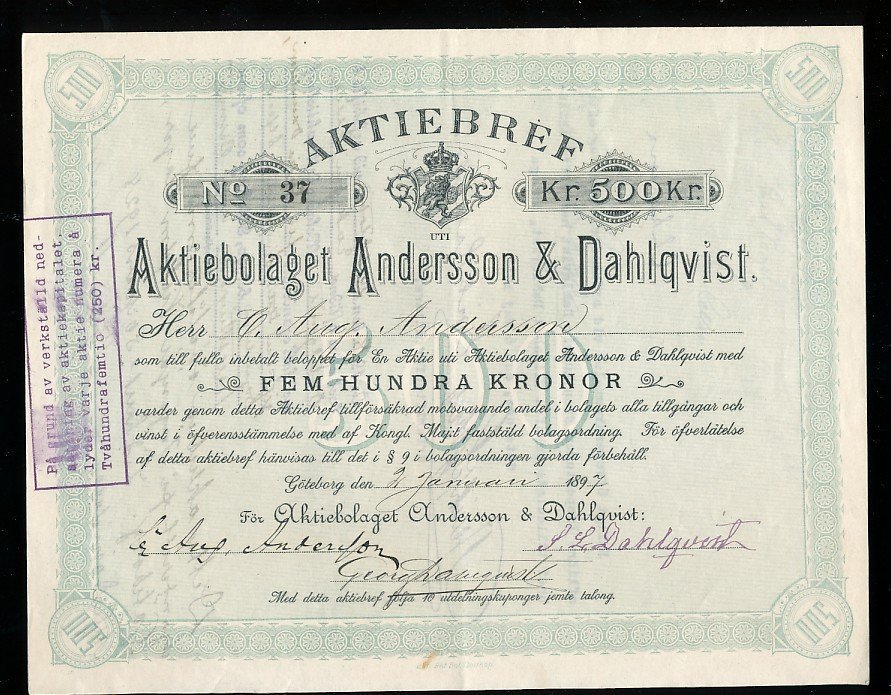 500
500
AKTIEBREF
No 37
Kr. 500 Kr.
UTI
Aktiebolaget Andersson & Dahlqvist.
Herr C. Aug. Andersson
som till fullo inbetalt beloppet för En Aktie uti Aktiebolaget Andersson & Dahlqvist med
FEM HUNDRA KRONOR
500
varder genom detta Aktiebref tillförsäkrad motsvarande andel i bolagets alla tillgångar och
vinst i öfverensstämmelse med af Kongl. Maj:t faststäld bolagsordning. För öfverlåtelse
af detta aktiebref hänvisas till det i § 9 i bolagsordningen gjorda förbehåll.
Göteborg den 2 Januari 1897
För Aktiebolaget Andersson & Dahlqvist:
C. Aug. Andersson
S. L. Dahlqvist
Georg
Med detta aktiebref följa 10 utdelningskuponger jemte talong.
500
500
På grund av verkställd ned-
av aktiekapitalet.
lyder varje aktie numera å
Tvåhundrafemtio (250) kr.